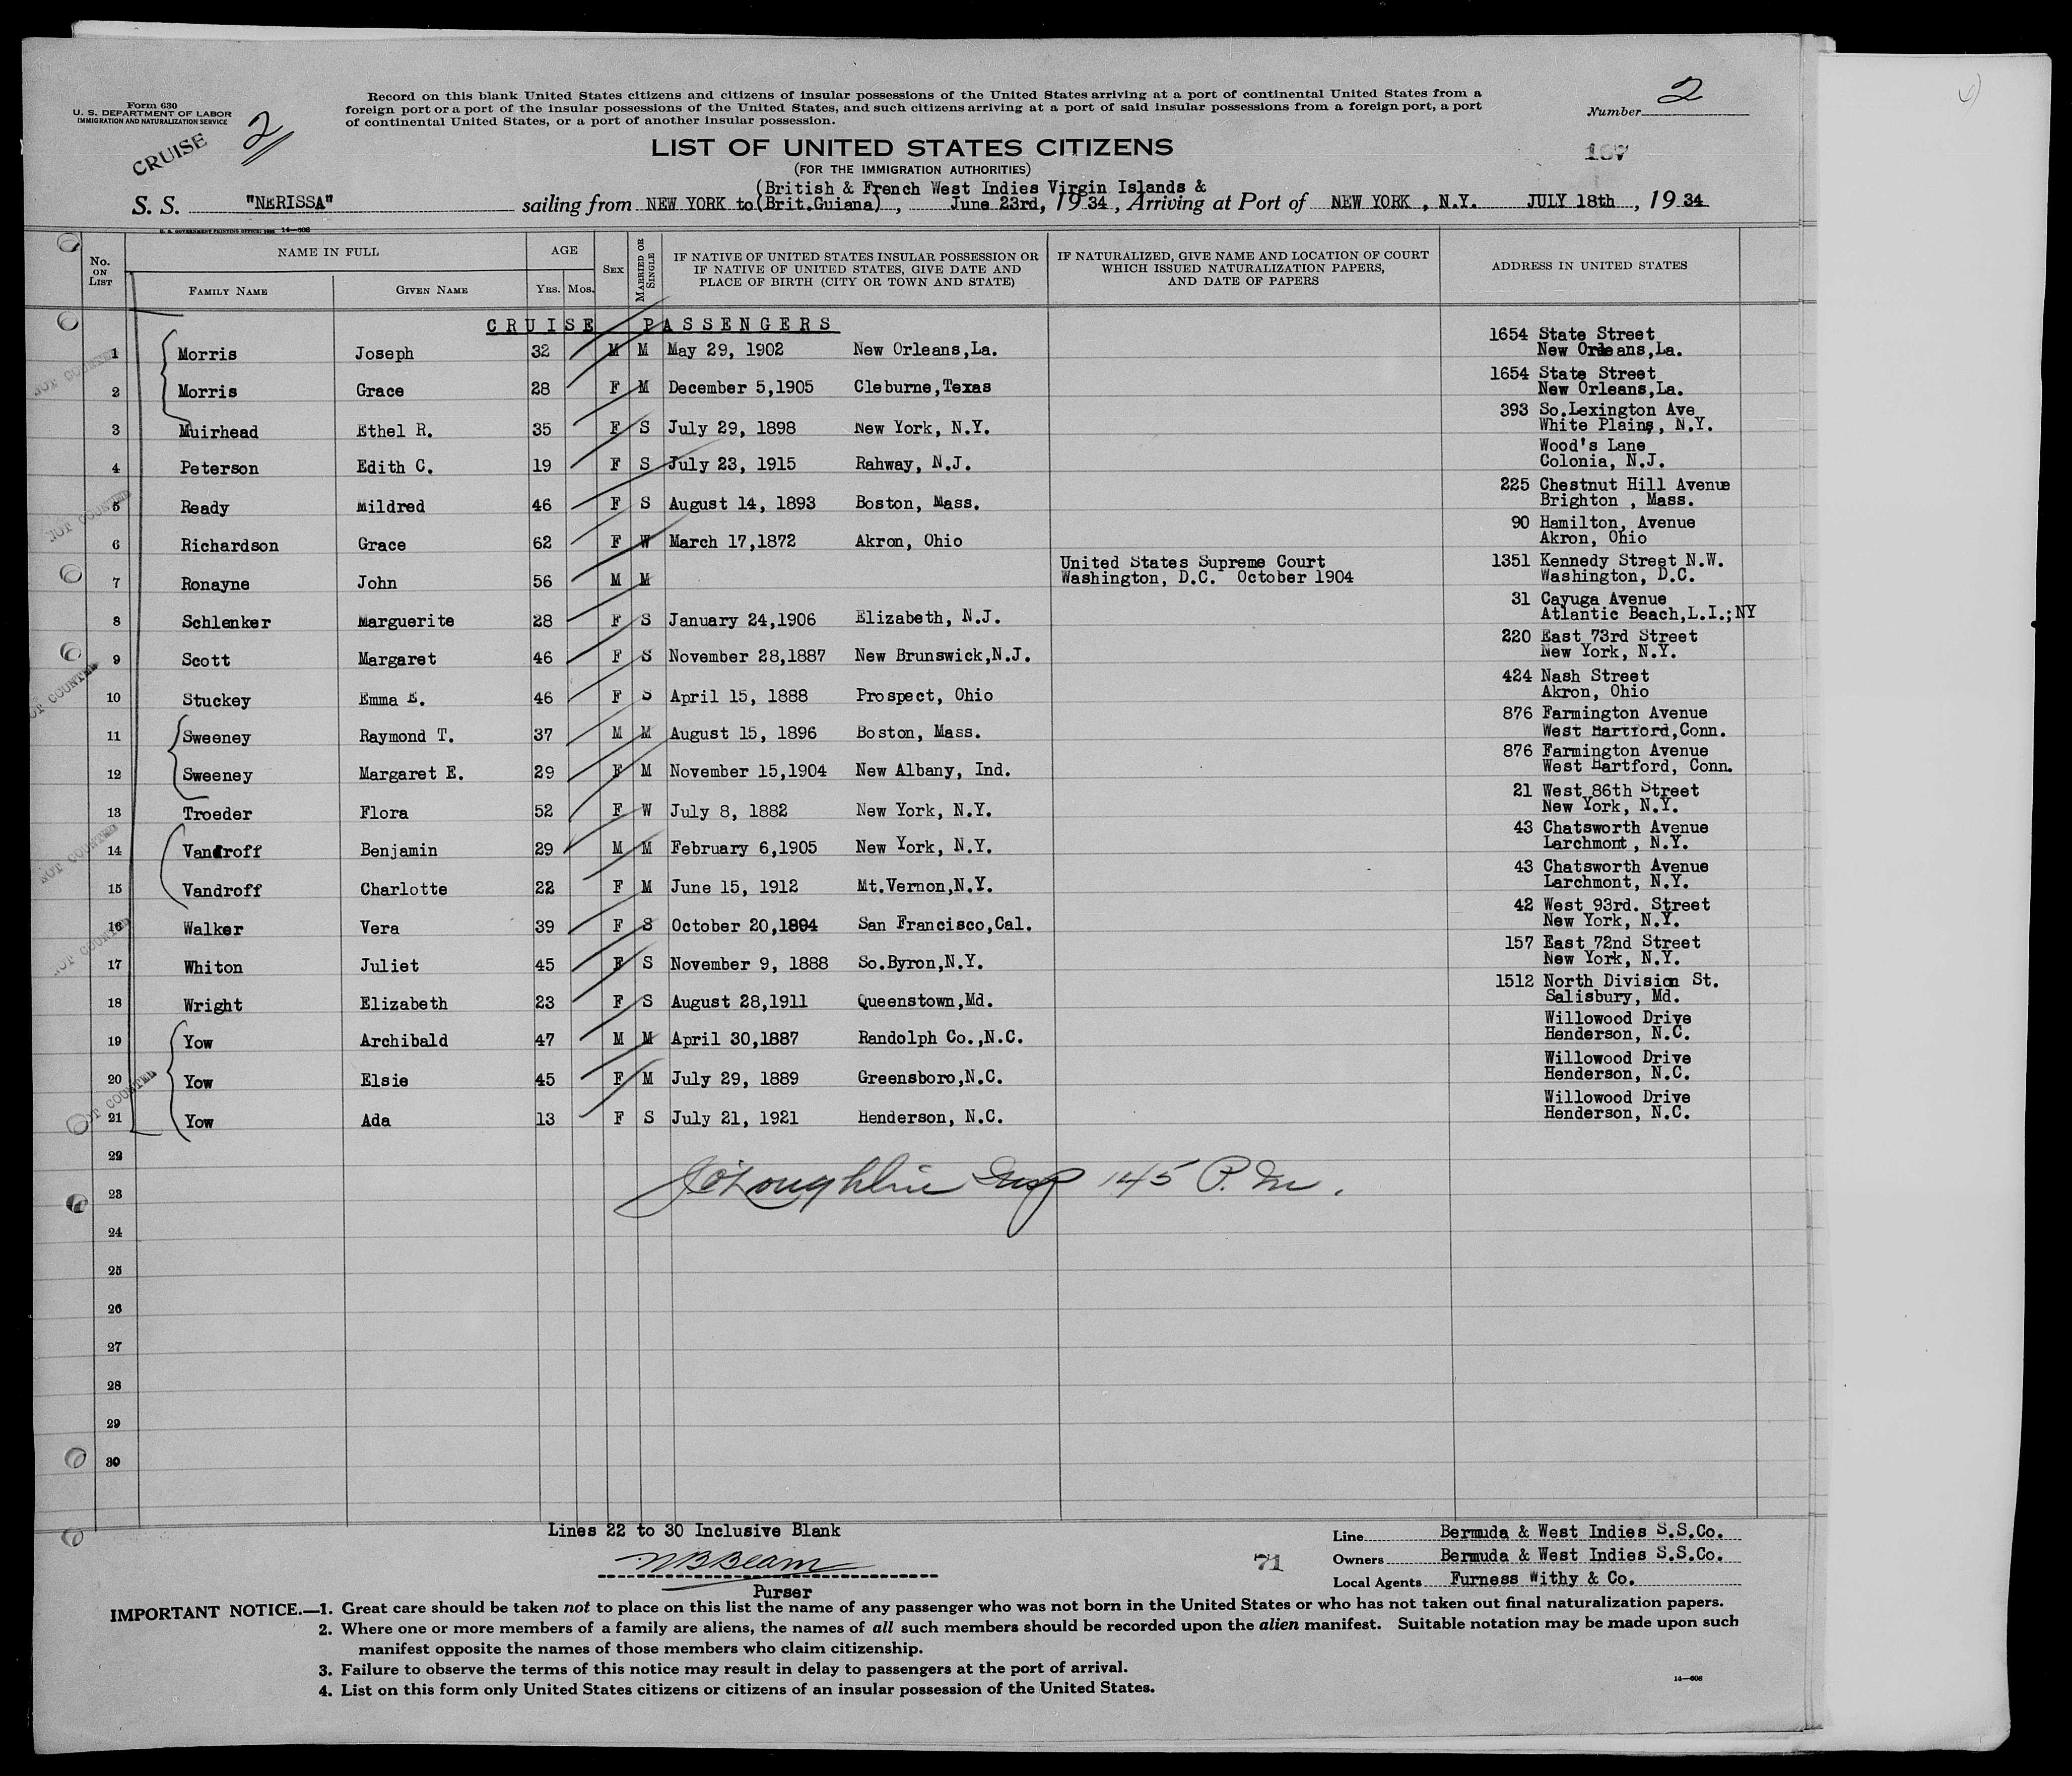 Form 630
U. S. DEPARTMENT OF LABOR
IMMIGRATION AND NATURALIZATION SERVICE
CRUISE 2
Record on this blank United States citizens and citizens of insular possessions of the United States arriving at a port of continental United States from a
foreign port or a port of the insular possessions of the United States, and such citizens arriving at a port of said insular possessions from a foreign port, a port
of continental United States, or a port of another insular possession.
Number 2
LIST OF UNITED STATES CITIZENS
(FOR THE IMMIGRATION AUTHORITIES)
167
(British & French West Indies Virgin Islands &
S. S. "NERISSA" sailing from NEW YORK to (Brit.Guiana) , June 23rd, 19 34 , Arriving at Port of NEW YORK , N.Y. JULY 18th , 19 34
U. S. GOVERNMENT PRINTING OFFICE: 14—608
No. ON LIST NAME IN FULL AGE SEX MARRIED OR SINGLE IF NATIVE OF UNITED STATES INSULAR POSSESSION OR IF NATIVE OF UNITED STATES, GIVE DATE AND PLACE OF BIRTH (CITY OR TOWN AND STATE) IF NATURALIZED, GIVE NAME AND LOCATION OF COURT WHICH ISSUED NATURALIZATION PAPERS, AND DATE OF PAPERS ADDRESS IN UNITED STATES
FAMILY NAME GIVEN NAME YRS. MOS.
CRUISE PASSENGERS
1 Morris Joseph 32 M M May 29, 1902 New Orleans,La. 1654 State Street New Orleans,La.
2 Morris Grace 28 F M December 5,1905 Cleburne,Texas 1654 State Street New Orleans,La.
3 Muirhead Ethel R. 35 F S July 29, 1898 New York, N.Y. 393 So.Lexington Ave White Plains, N.Y.
4 Peterson Edith C. 19 F S July 23, 1915 Rahway, N.J. Wood's Lane Colonia, N.J.
5 Ready Mildred 46 F S August 14, 1893 Boston, Mass. 225 Chestnut Hill Avenue Brighton , Mass.
6 Richardson Grace 62 F W March 17,1872 Akron, Ohio 90 Hamilton, Avenue Akron, Ohio
7 Ronayne John 56 M M United States Supreme Court Washington, D.C. October 1904 1351 Kennedy Street N.W. Washington, D.C.
8 Schlenker Marguerite 28 F S January 24,1906 Elizabeth, N.J. 31 Cayuga Avenue Atlantic Beach,L.I.;NY
9 Scott Margaret 46 F S November 28,1887 New Brunswick,N.J. 220 East 73rd Street New York, N.Y.
10 Stuckey Emma E. 46 F S April 15, 1888 Prospect, Ohio 424 Nash Street Akron, Ohio
11 Sweeney Raymond T. 37 M M August 15, 1896 Boston, Mass. 876 Farmington Avenue West Hartford,Conn.
12 Sweeney Margaret E. 29 F M November 15,1904 New Albany, Ind. 876 Farmington Avenue West Hartford, Conn.
13 Troeder Flora 52 F W July 8, 1882 New York, N.Y. 21 West 86th Street New York, N.Y.
14 Vandroff Benjamin 29 M M February 6,1905 New York, N.Y. 43 Chatsworth Avenue Larchmont , N.Y.
15 Vandroff Charlotte 22 F M June 15, 1912 Mt.Vernon,N.Y. 43 Chatsworth Avenue Larchmont, N.Y.
16 Walker Vera 39 F S October 20,1894 San Francisco,Cal. 42 West 93rd. Street New York, N.Y.
17 Whiton Juliet 45 F S November 9, 1888 So.Byron,N.Y. 157 East 72nd Street New York, N.Y.
18 Wright Elizabeth 23 F S August 28,1911 Queenstown,Md. 1512 North Division St. Salisbury, Md.
19 Yow Archibald 47 M M April 30,1887 Randolph Co.,N.C. Willowood Drive Henderson, N.C.
20 Yow Elsie 45 F M July 29, 1889 Greensboro,N.C. Willowood Drive Henderson, N.C.
21 Yow Ada 13 F S July 21, 1921 Henderson, N.C. Willowood Drive Henderson, N.C.
NOT COUNTED
NOT COUNTED
NOT COUNTED
NOT COUNTED
NOT COUNTED
NOT COUNTED
22
J O'Loughlin Insp 145 P.M.
23
24
25
26
27
28
29
30
Lines 22 to 30 Inclusive Blank
N B Beam
Purser
71
Line Bermuda & West Indies S.S.Co.
Owners Bermuda & West Indies S.S.Co.
Local Agents Furness Withy & Co.
IMPORTANT NOTICE.—1. Great care should be taken not to place on this list the name of any passenger who was not born in the United States or who has not taken out final naturalization papers.
2. Where one or more members of a family are aliens, the names of all such members should be recorded upon the alien manifest. Suitable notation may be made upon such
manifest opposite the names of those members who claim citizenship.
3. Failure to observe the terms of this notice may result in delay to passengers at the port of arrival.
4. List on this form only United States citizens or citizens of an insular possession of the United States.
14—608